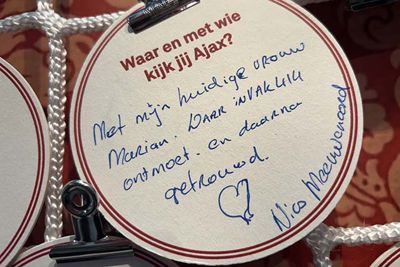 Waar en met wie
kijk jij Ajax?
Met mijn huidige vrouw
Marian. DAAR in VAK 414
ontmoet. en daarna
getrouwd.
Nico Meeuwenoord